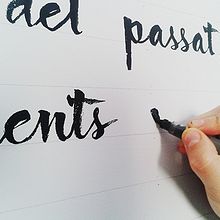 del passat
ents